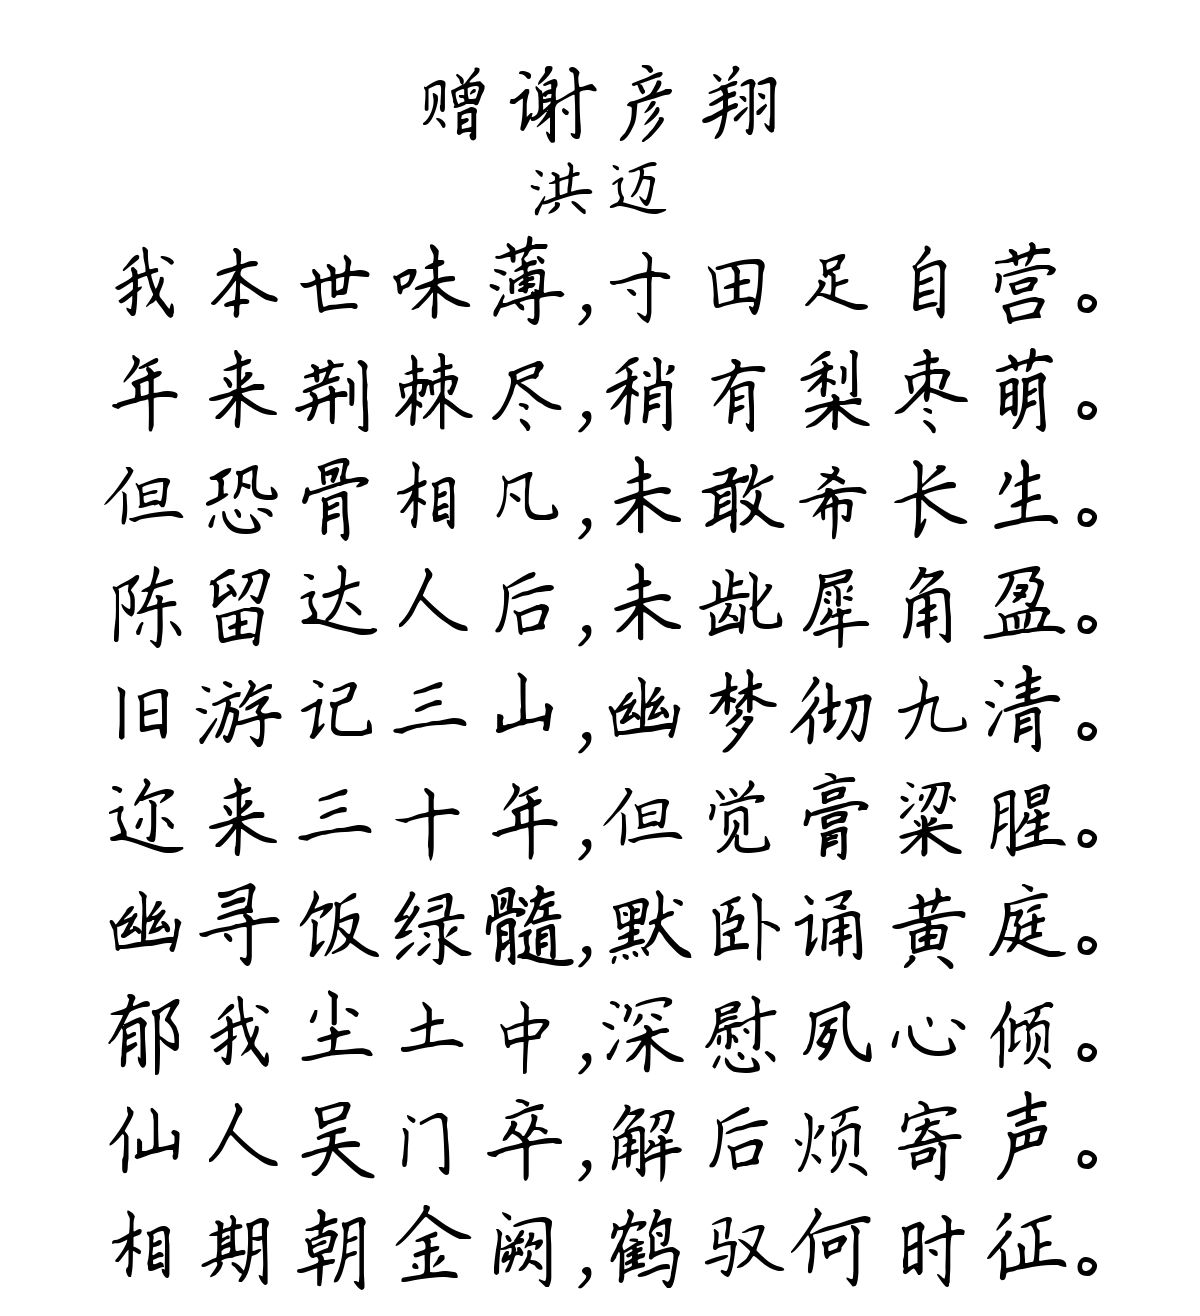 赠谢彦翔
洪迈
我本世味薄,寸田足自营。
年来荆棘尽,稍有梨枣萌。
但恐骨相凡,未敢希长生。
陈留达人后,未龀犀角盈。
旧游记三山,幽梦彻九清。
迩来三十年,但觉膏粱腥。
幽寻饭绿髓,默卧诵黄庭。
郁我尘土中,深慰夙心倾。
仙人吴门卒,解后烦寄声。
相期朝金阙,鹤驭何时征。